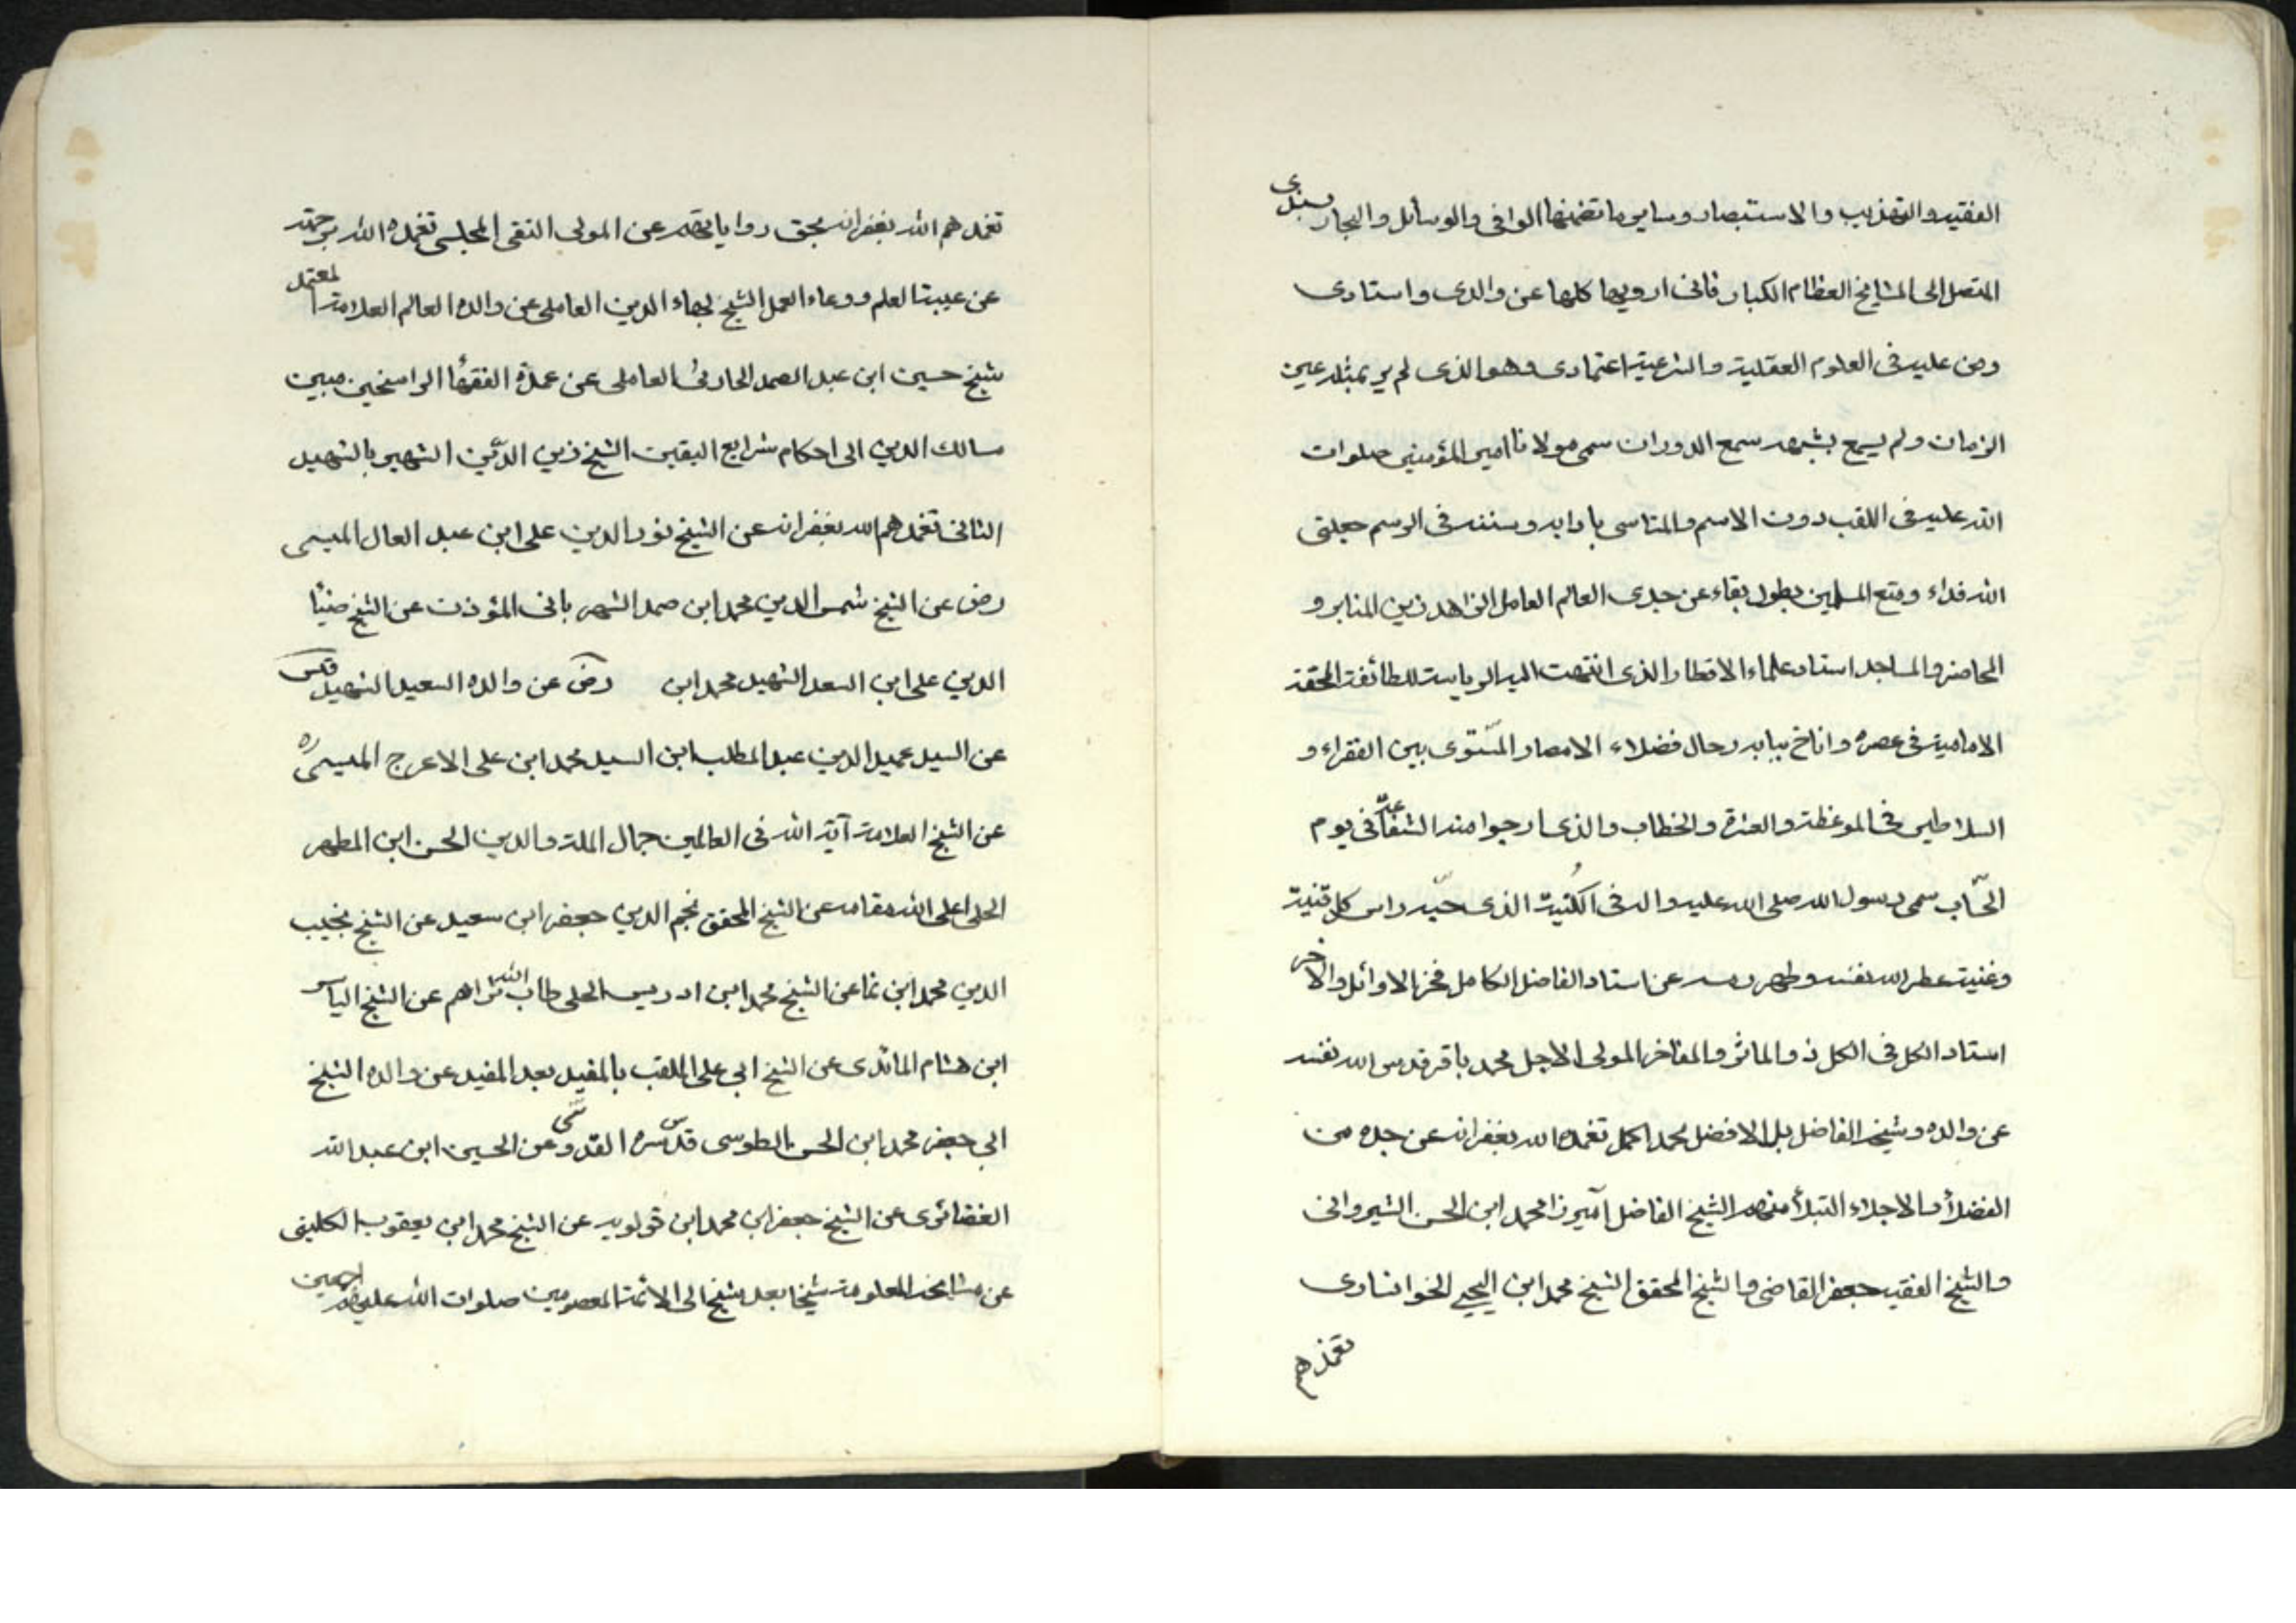 الفقيه والتهذيب والاستبصار وساير ما تضمنها الوافى والوسائل والبحار بسندى
المتصل الى المشايخ العظام الكبار فانى ارويها كلها عن والدى واستادى
ومن عليه فى العلوم العقلية والشرعية اعتمادى وهو الذى لم ير بمثله عين
الزمان ولم يسمع بشبهه سمع الدوران سمى مولانا امير المؤمنين صلوات
الله عليه فى اللقب دون الاسم والمتاسى بادابه وسننه فى الرسم جعلنى
الله فداء ومتع المسلمين بطول بقاء عن جدى العالم العامل الزاهد زين المنابر و
المحاضر والمساجد استاد علماء الاقطار الذى انتهت اليه الرياسة للطائفة المحقة
الامامية فى عصره واناخ ببابه رحال فضلاء الامصار المستوى بين الفقراء و
السلاطين فى الموعظة والعزة والخطاب والذى ارجوا منه الشفاعة فى يوم
الحساب سمى رسول الله صلى الله عليه واله فى الكنية الذى حبه راس كل قنية
وغنية عطر الله نفسه وطهر رمسه عن استاد الفاضل الكامل فخر الاوائل والاخر
استاد الكل فى الكل ذو الماثر والمفاخر المولى الاجل محمد باقر قدس الله نفسه
عن والده وشيخه الفاضل بل الافضل محمد اكمل تغمده الله بغفرانه عن جده من
الفضلأ والاجلاء النبلأ منهم الشيخ الفاضل آميرزا محمد ابن الحسن الشيروانى
والشيخ الفقيه جعفر القاضى والشيخ المحقق الشيخ محمد ابن اليحيى الخوانسارى
تغمدهم
تغمدهم الله بغفرانه بحق رواياتهم عن المولى التقى المجلسى تغمده الله برحمته
عن عيبة العلم ووعاء العمل الشيخ بهاء الدين العاملى عن والده العالم العلامة المعتمد
شيخ حسين ابن عبد الصمد الحارثى العاملى عن عمدة الفقهأ الراسخين مبين
مسالك الدين الى احكام شرايع اليقين الشيخ زين الدّين الشهير بالشهيد
الثانى تغمدهم الله بغفرانه عن الشيخ نور الدين على ابن عبد العال الميسى
رض عن الشيخ شمس الدين محمد ابن صمد الشهر بانى المؤذن عن الشيخ ضيأ
الدين على ابن السعد الشهيد محمد ابن رض عن والده السعيد الشهيد قدس
عن السيد عميد الدين عبد المطلب ابن السيد محمد ابن على الاعرج الميسى ره
عن الشيخ العلامة آية الله فى العالمين جمال الملة والدين الحسن ابن المطهر
الحلى اعلى الله مقامه عن الشيخ المحقق نجم الدين جعفر ابن سعيد عن الشيخ نجيب
الدين محمد ابن نما عن الشيخ محمد ابن ادريس الحلى طاب الله ثراهم عن الشيخ الياس
ابن هشام المائدى عن الشيخ ابى على الملقب بالمفيد بعد المفيد عن والده الشيخ
ابى جعفر محمد ابن الحسن الطوسى قدّس سره القدوسى عن الحسين ابن عبد الله
الغضائرى عن الشيخ جعفر ابن محمد ابن قولويه عن الشيخ محمد ابن يعقوب الكلينى
عن مشايخه المعلومة شيخا بعد شيخ الى الائمة المعصومين صلوات الله عليهم اجمعين